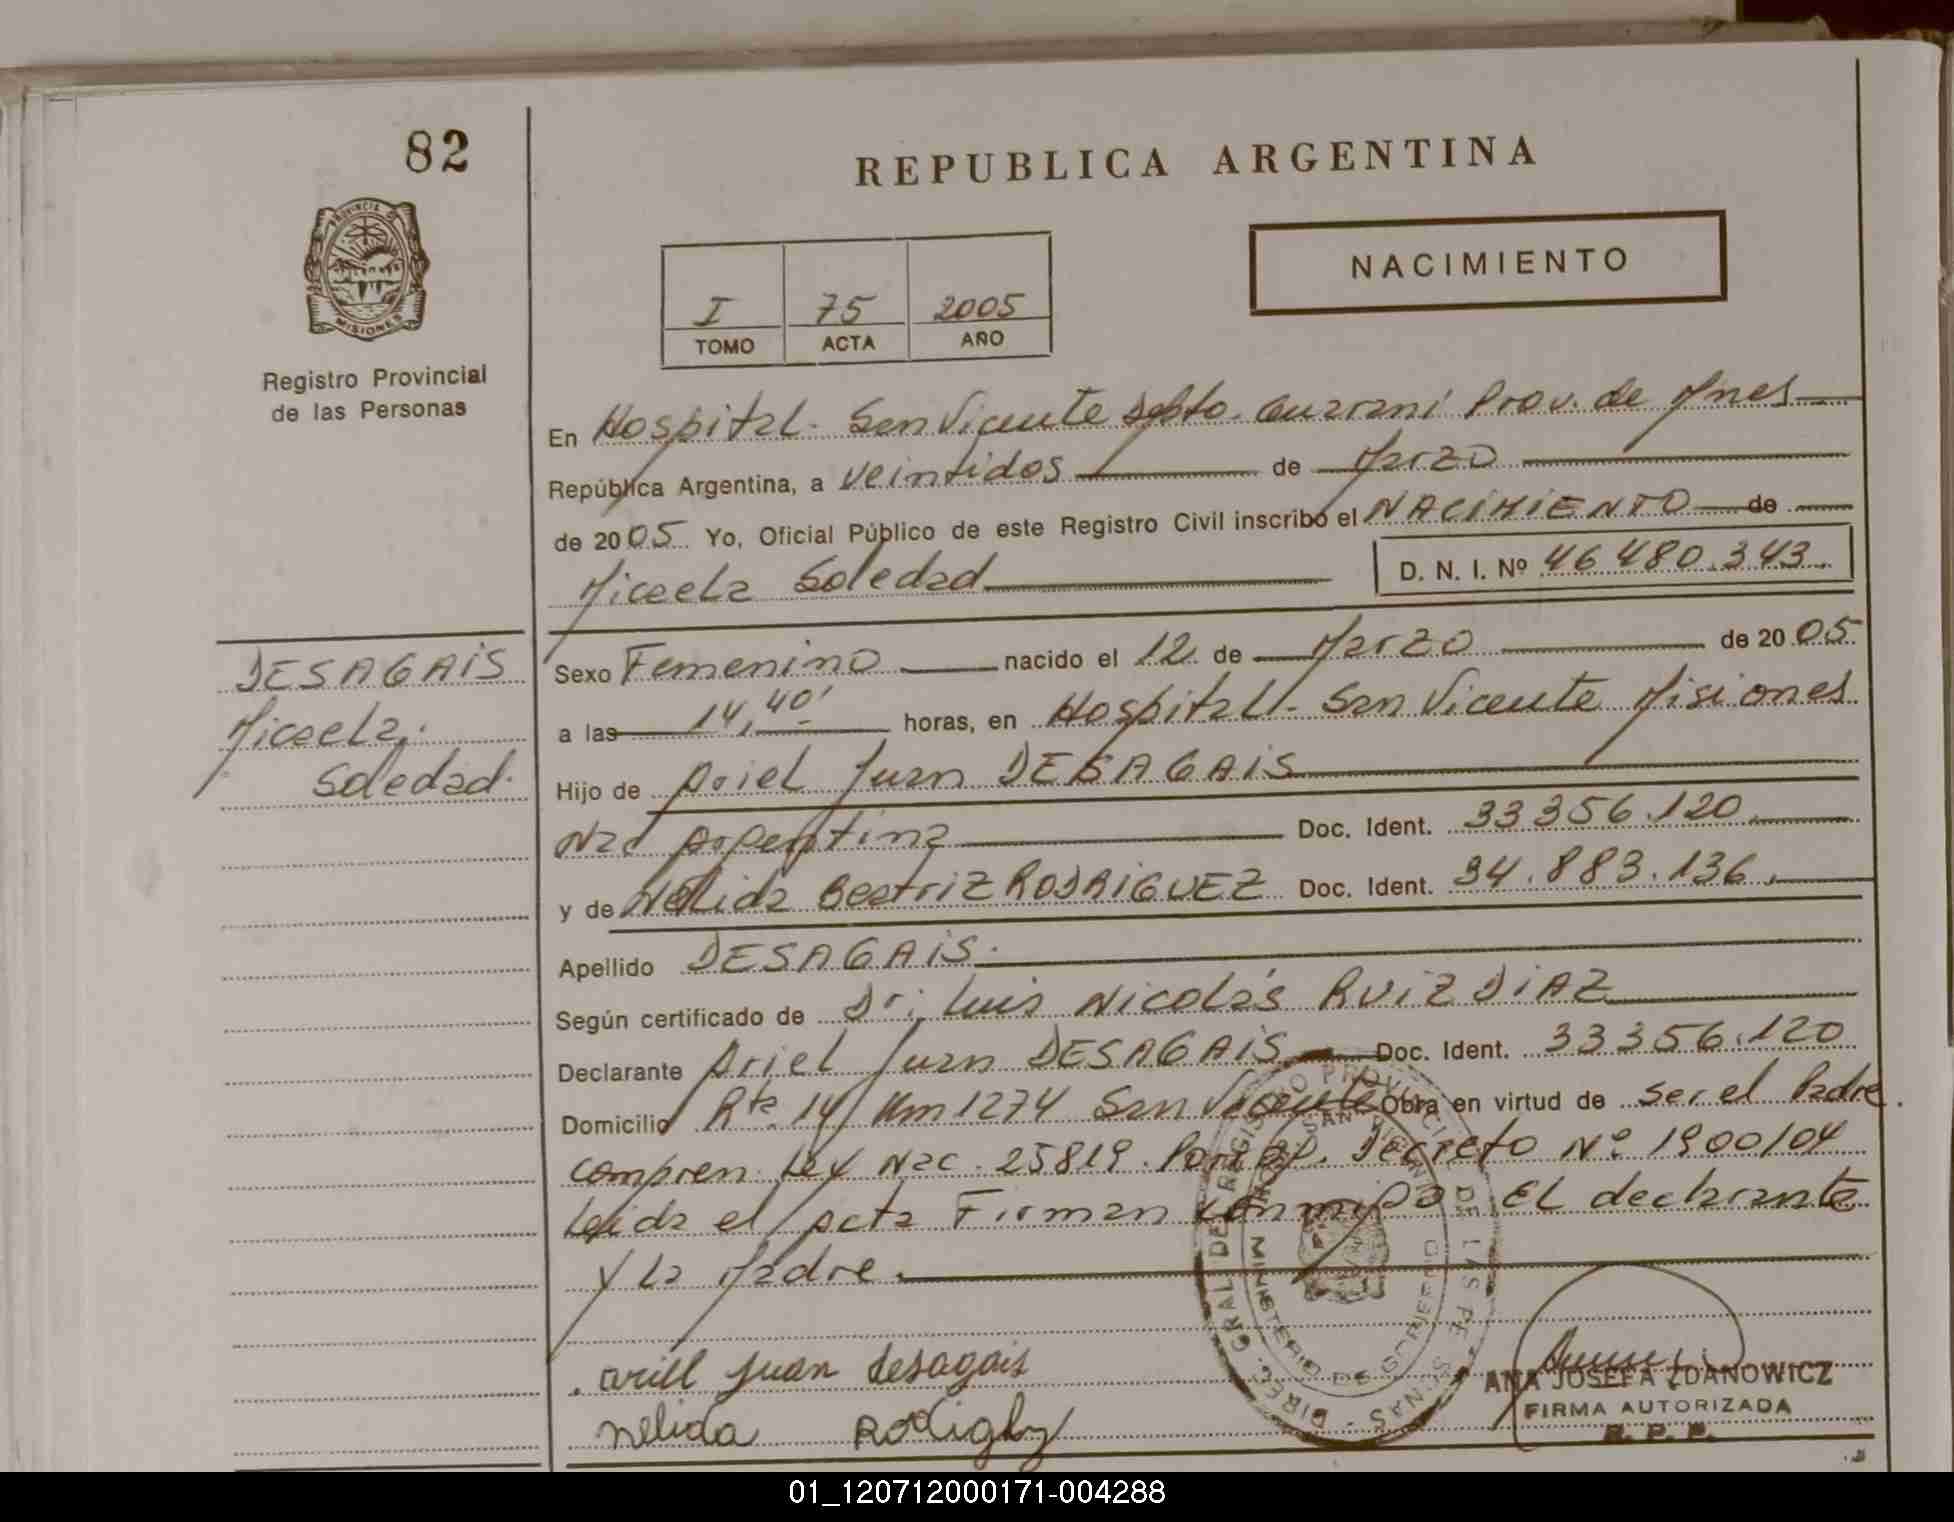 82
REPUBLICA ARGENTINA
PROVINCIA DE MISIONES
Registro Provincial
de las Personas
NACIMIENTO
I 75 2005
TOMO ACTA AÑO
En Hospital. San Vicente Depto. Guarani Prov. de Mnes
República Argentina, a veintidos de Marzo
de 2005 Yo, Oficial Público de este Registro Civil inscribo el NACIMIENTO de
Micaela Soledad D. N. I. Nº 46 480.343.
DESAGAIS
Micaela.
Soledad.
Sexo Femenino nacido el 12 de Marzo de 2005
a las 14,40' horas, en Hospital - San Vicente Misiones
Hijo de Ariel Juan DESAGAIS
Nac Argentina Doc. Ident. 33356.120.
y de Nelida Beatriz RODRIGUEZ Doc. Ident. 34.883.136.
Apellido DESAGAIS.
Según certificado de Dr: Luis Nicolás RUIZ DIAZ
Declarante Ariel Juan DESAGAIS Doc. Ident. 33356.120
Domicilio Rta. 14 Km 1274 San Vicente Obra en virtud de ser el Padre.
Compren. Ley Nac. 25819. Decreto Nº 1900/04
Leida el Acta Firman conmigo El declarante
y la Madre.
Juan desagais
nelida
DIREC. GRAL. DEL REGISTRO PROVINCIAL DE LAS PERSONAS
MINISTERIO DE GOBIERNO
SAN VICENTE
ANA JOSEFA ZDANOWICZ
FIRMA AUTORIZADA
R. P. P.
01_120712000171-004288